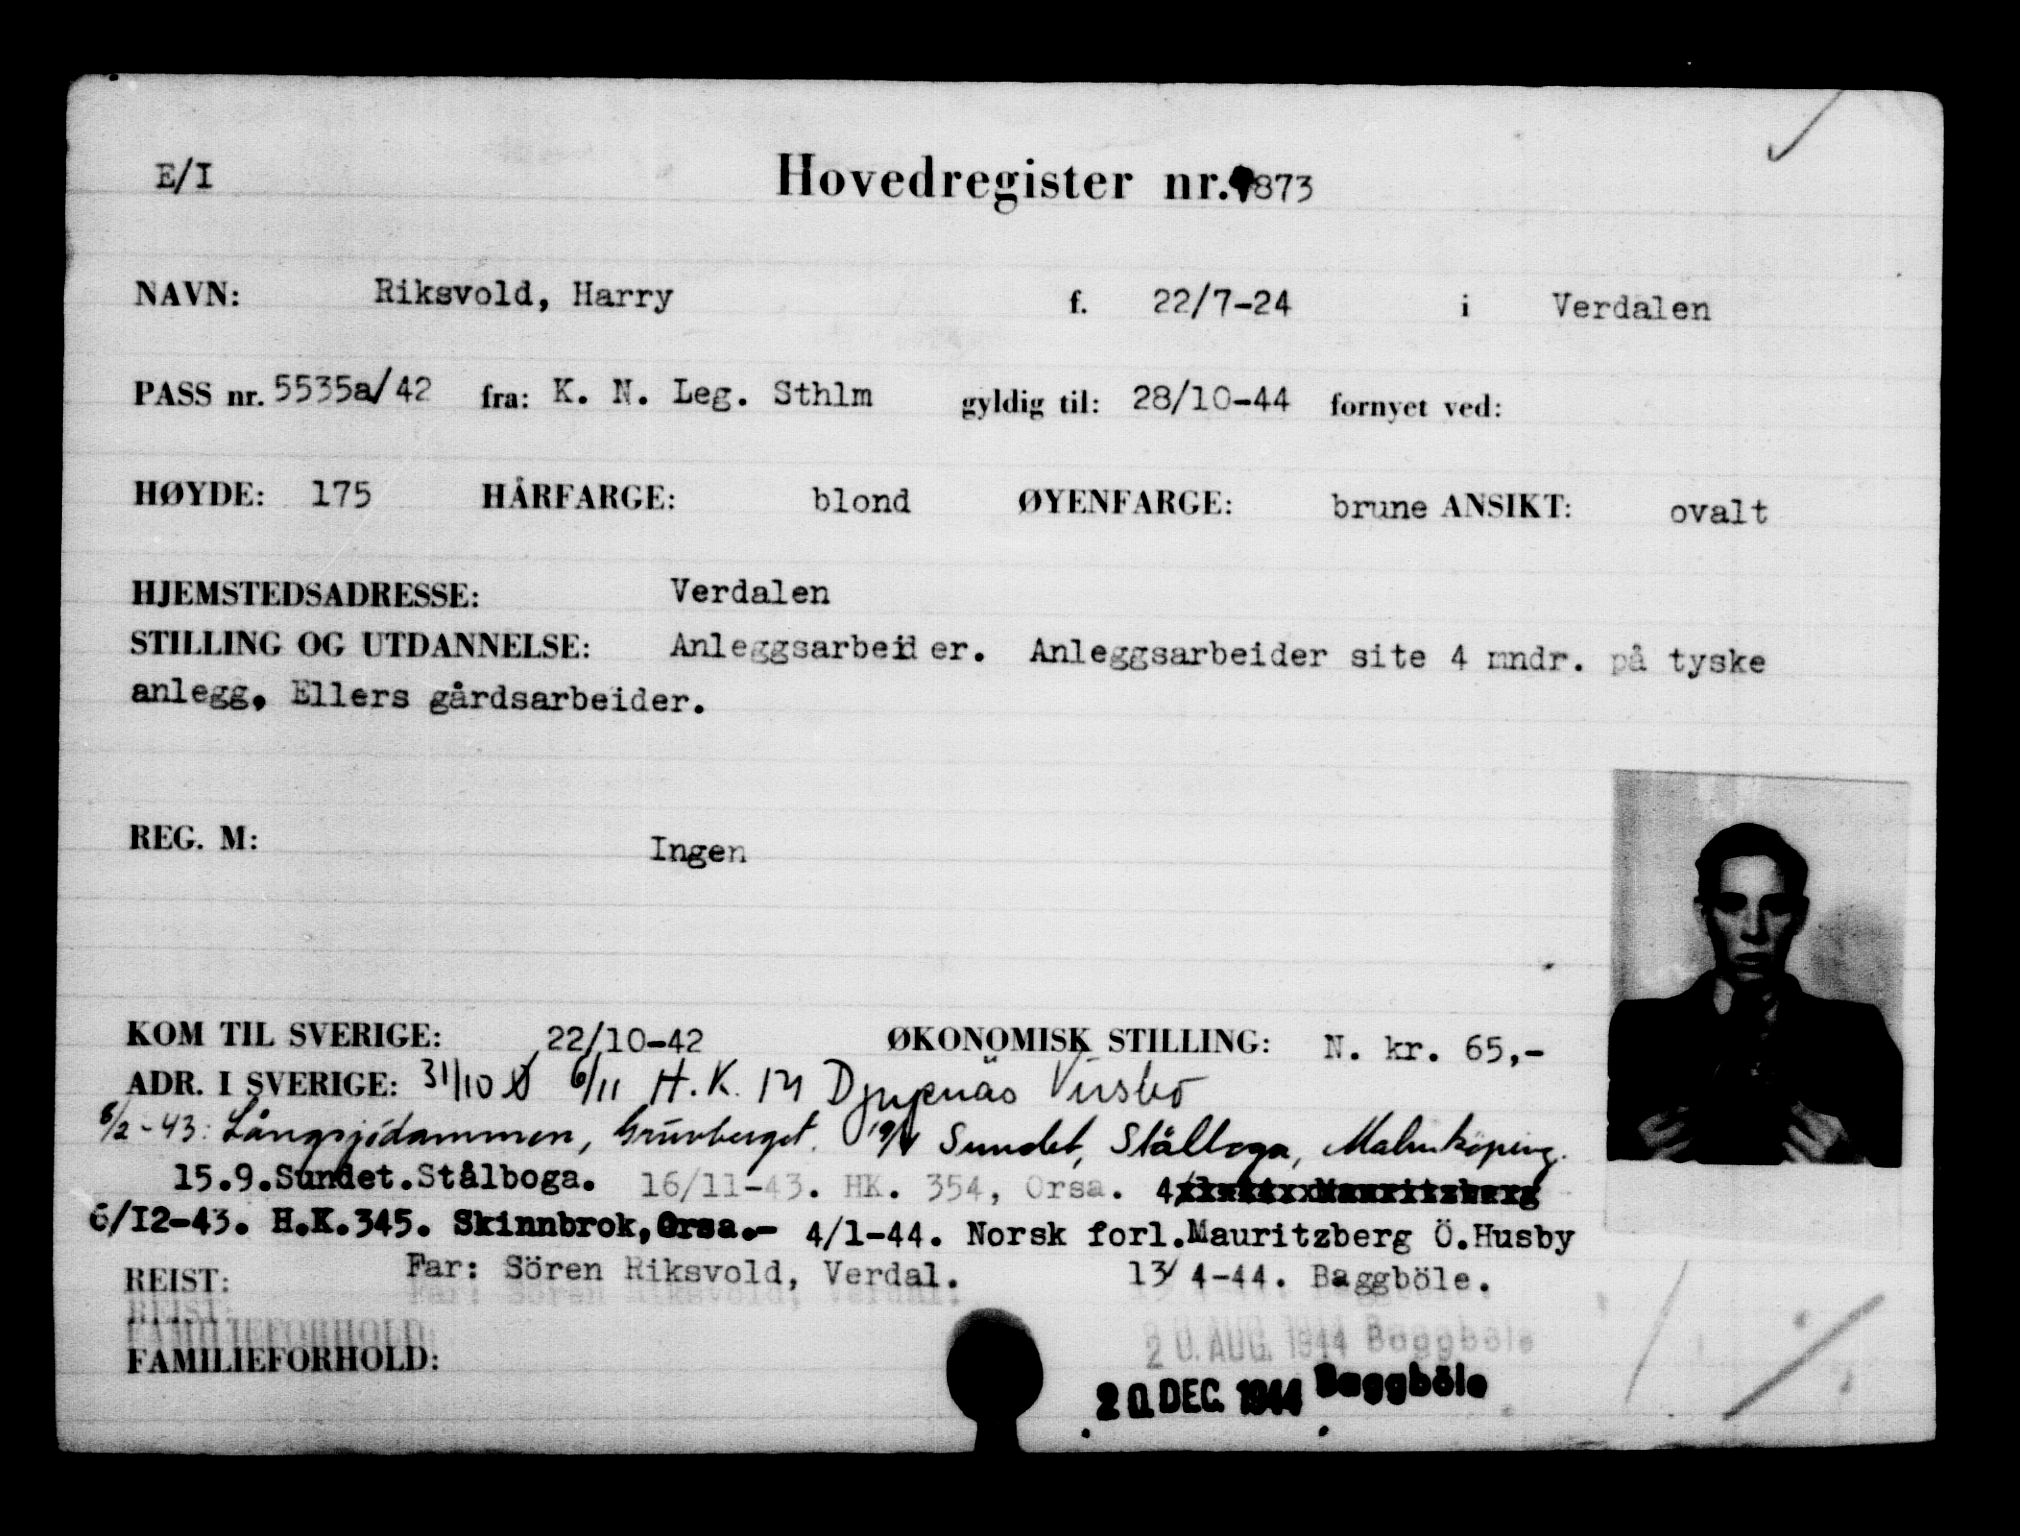 E/I
Hovedregister nr. 9873
NAVN: Riksvold, Harry f. 22/7-24 i Verdalen
PASS nr. 5535a/42 fra: K. N. Leg. Sthlm gyldig til: 28/10-44 fornyet ved:
HØYDE: 175 HÅRFARGE: blond ØYENFARGE: brune ANSIKT: ovalt
HJEMSTEDSADRESSE: Verdalen
STILLING OG UTDANNELSE: Anleggsarbeider. Anleggsarbeider site 4 mndr. på tyske
anlegg. Ellers gårdsarbeider.
REG. M: Ingen
KOM TIL SVERIGE: 22/10-42 ØKONOMISK STILLING: N. kr. 65,-
ADR. I SVERIGE: 31/10 6/11 H.K. Djupnäs Virsbo
6/2-43: Långsjödammen, Grünberget. Sundet, Stålboga, Malmköping.
15.9.Sundet.Stålboga. 16/11-43. HK. 354, Orsa. 4/1-44. Mauritzberg
6/12-43. H.K.345. Skinnbrok,Orsa.- 4/1-44. Norsk forl.Mauritzberg Ö.Husby
REIST: Far: Sören Riksvold, Verdal. 13/4-44. Baggböle.
REIST:
FAMILIEFORHOLD:
20. AUG. 1944 Baggböle
FAMILIEFORHOLD:
20 DEC. 1944 Baggböle